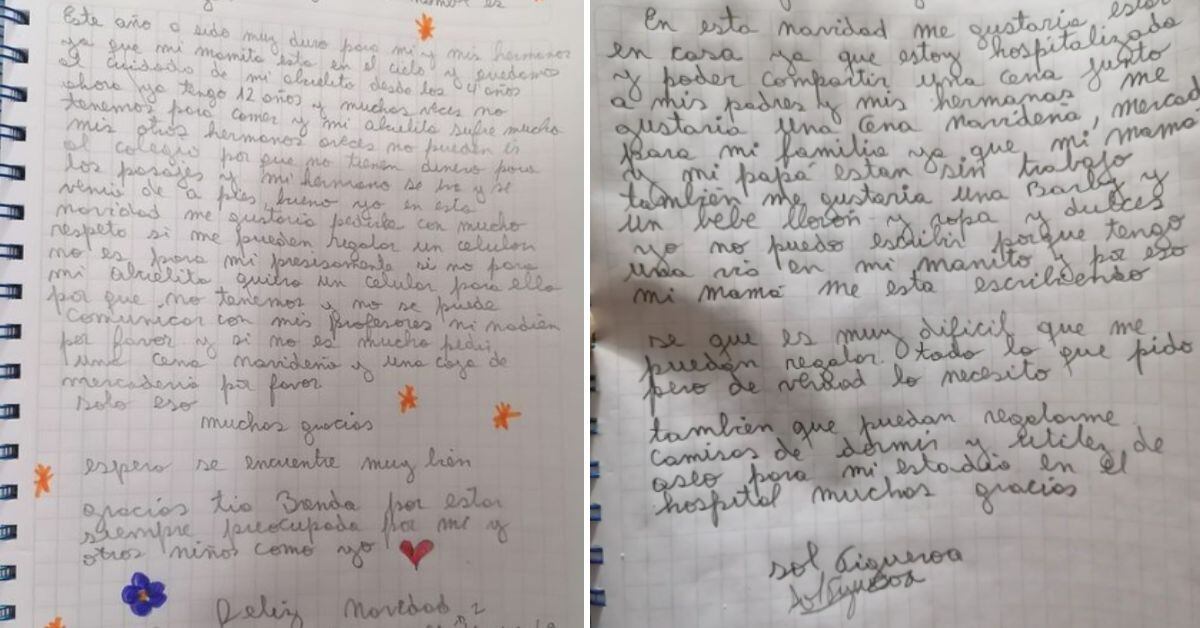 es
Este año a sido muy duro para mi y mis hermanos
ya que mi mamita esta en el cielo y quedamos
al cuidado de mi abuelita desde los 4 años
ahora ya tengo 12 años y muchas veces no
tenemos para comer y mi abuelita sufre mucho
mis otros hermanos aveces no pueden ir
al colegio por que no tienen dinero para
los pasajes y mi hermano se va y se
viene de a pies, bueno yo en esta
navidad me gustaria pedirle con mucho
respeto si me pueden regalar un celular
no es para mi presisamente si no para
mi abuelita quiero un celular para ella
por que no tenemos y no se puede
comunicar con mis profesores ni nadien
por favor y si no es mucho pedir
una cena navideña y una caja de
mercaderia por favor
solo eso
muchas gracias
espero se encuentre muy bien
gracias tia Branda por estar
siempre preocupada por mi y
otros niños como yo
Feliz Navidad
En esta navidad me gustaria estar
en casa ya que estoy hospitalizada
y poder compartir una cena junto
a mis padres y mis hermanas me
gustaria una cena navideña, mercad
para mi familia ya que mi mama
y mi papá estan sin trabajo
también me gustaria una Barby y
un bebe lloron y ropa y dulces
yo no puedo escribir porque tengo
una via en mi manito y por eso
mi mamá me esta escribiendo
se que es muy dificil que me
puedan regalar todo lo que pido
pero de verdad lo necesito
también que puedan regalarme
camisas de dormir y utiles de
aseo para mi estadia en el
hospital muchas gracias
Sol Figueroa
Sol Figueroa